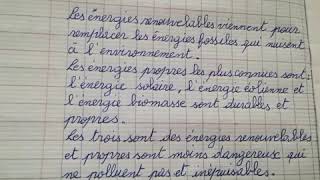 Les énergies renouvelables viennent pour
remplacer les énergies fossiles qui nuisent
à l'environnement.
Les énergies propres les plus connues sont :
l'énergie solaire, l'énergie éolienne et
l'énergie biomasse sont durables et
propres.
Les trois sont des énergies renouvelables
et propres sont moins dangereux qui
ne polluent pas et inépuisables.